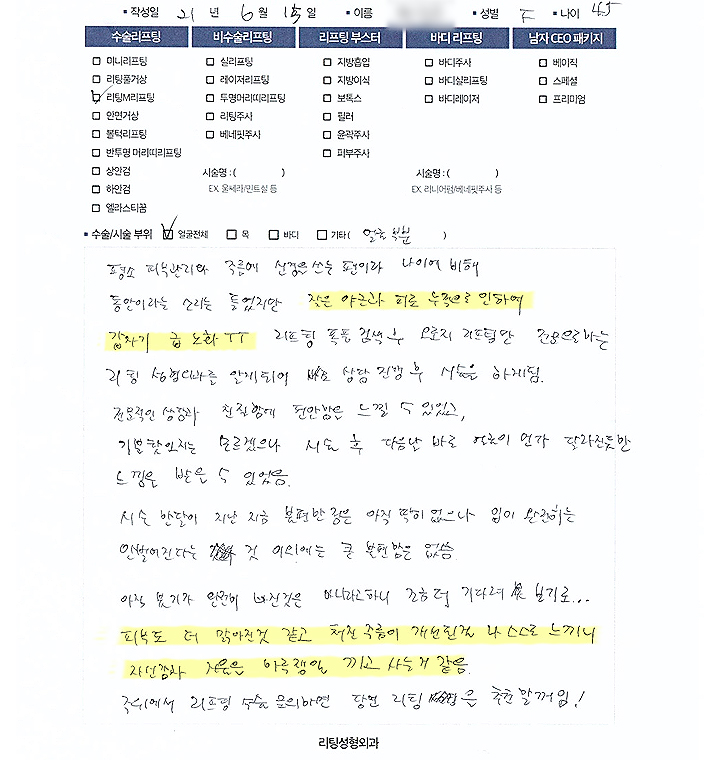 ▪ 작성일 21 년 6 월 15 일 ▪ 이름 ▪ 성별 F ▪ 나이 45
수술리프팅 비수술리프팅 리프팅 부스터 바디 리프팅 남자 CEO 패키지
미니리프팅 실리프팅 지방흡입 바디주사 베이직
리팅풀거상 레이저리프팅 지방이식 바디실리프팅 스페셜
리팅M리프팅 투명머리띠리프팅 보톡스 바디레이저 프리미엄
안면거상 리팅주사 필러
볼턱리프팅 베네핏주사 윤곽주사
반투명 머리띠리프팅 피부주사
상안검 시술명 : ( ) 시술명 : ( )
하안검 EX. 울쎄라/민트실 등 EX. 리니어펌/베네핏주사 등
엘라스티꿈
▪ 수술/시술 부위 얼굴전체 목 바디 기타 ( 얼굴 부분 )
평소 피부관리와 주름에 신경은 쓰는 편이라 나이에 비해
동안이라는 소리는 들었지만 잦은 야근과 피로 누적으로 인하여
갑자기 급 노화 ㅜㅜ 리프팅 폭풍 검색 후 오로지 리프팅만 전문으로 하는
리팅 성형외과를 알게되어 바로 상담 진행 후 시술을 하게됨.
전문적인 상담과 친절함에 편안함을 느낄 수 있었고,
기분탓인지는 모르겠으나 시술 후 다음날 바로 얼굴이 먼가 달라진듯한
느낌을 받을 수 있었음.
시술 한달이 지난 지금 불편한 점은 아직 딱히 없으나 입이 완전히는
안벌어진다는 것 이외에는 큰 불편함은 없음.
아직 붓기가 완전히 빠진것은 아니라고하니 조금 더 기다려 보기로...
피부도 더 맑아진것 같고 처진 주름이 개선된걸 나 스스로 느끼니
자신감과 자존은 하루종일 끼고 사는거 같음.
주위에서 리프팅 수술 문의하면 당연 리팅 을 추천 할꺼임!
리팅성형외과